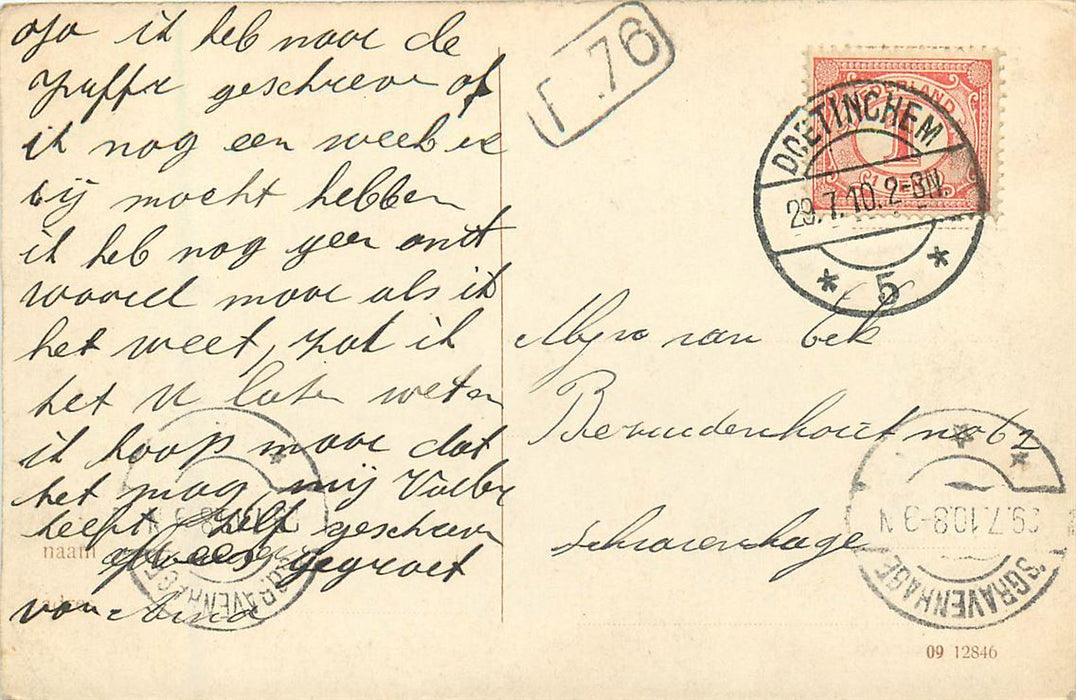 ik heb naar de
juffr geschreven of
ik nog een week er
bij mocht hebben
ik heb nog geen ant
woord maar als ik
het weet, zal ik
het U laten weten
ik hoop maar dat
het mag, mij
heeft zelf geschreven
gegroet
van
naam
F .76
NEDERLAND
1
DOETINCHEM
29.7.10.2-3N.
5
van Eek
Bezuidenhout no 62
schravenhage
29.7.10.8-9N
'SGRAVENHAGE
'SGRAVENHAGE
09 12846